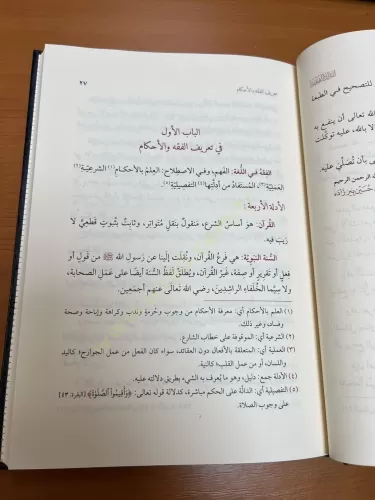 تعريف الفقه والأحكام
٢٧
الباب الأول
في تعريف الفقه والأحكام
الفِقهُ فـي اللُّغة: الفَهم، وفـي الاصطِلاح: العِلمُ بالأحكـام(١) الشرعيّـة(٢)
العمَليّة(٣)، المُستَفادُ من أدلّتِها(٤) التفصيليّة(٥).
الأدلة الأربعة:
القُرآن: هوَ أساسُ الشرع، مَنقولٌ بنَقلٍ مُتواتِر، وثابتٌ بثُبوتٍ قَطعيٍّ لا
رَيبَ فيه.
السُّنة النبَويّة: هيَ فَرعُ القُرآن، ونُقِلَت إلينا عن رَسولِ الله ﷺ من قَولٍ أو
فِعلٍ أو تقريرٍ أو صِفة، غيرُ القُرآن، ويُطلَقُ لَفظُ السُّنة أيضًا على عمَلِ الصحابة،
ولا سِيَّما الخُلفاءِ الراشِدين، رضي الله تعالى عنهم أجمعين.
(١) العلم بالأحكام أي: معرفة الأحكام من وجوب وحُرمةٍ ونَدبٍ وكراهة وإباحة وصحة
وفساد، وغير ذلك.
(٢) الشرعية أي: الموقوفة على خطاب الشارع.
(٣) العملية أي: المتعلقة بالأفعال دون العقائد، سواء كان الفعل من عمل الجوارح؛ كاليد
واللسان، أو من عمل القلب؛ كالنية.
(٤) الأدلة جمع: دليل، وهو ما يُعرف به الشيء بطريق دلالته عليه.
(٥) التفصيلية أي: الدالّة على الحكم مباشرة، كدلالة قوله تعالى: ﴿وَأَقِيمُوا۟ ٱلصَّلَوٰةَ﴾ [البقرة: ٤٣]
على وجوب الصلاة.
للتصحيح فـي الطبعة
الله تعالى أن ينفع به
لا بالله، عليه توكّلت
بأن تُصَلِّيَ عليه،
الرحمن الرحيم